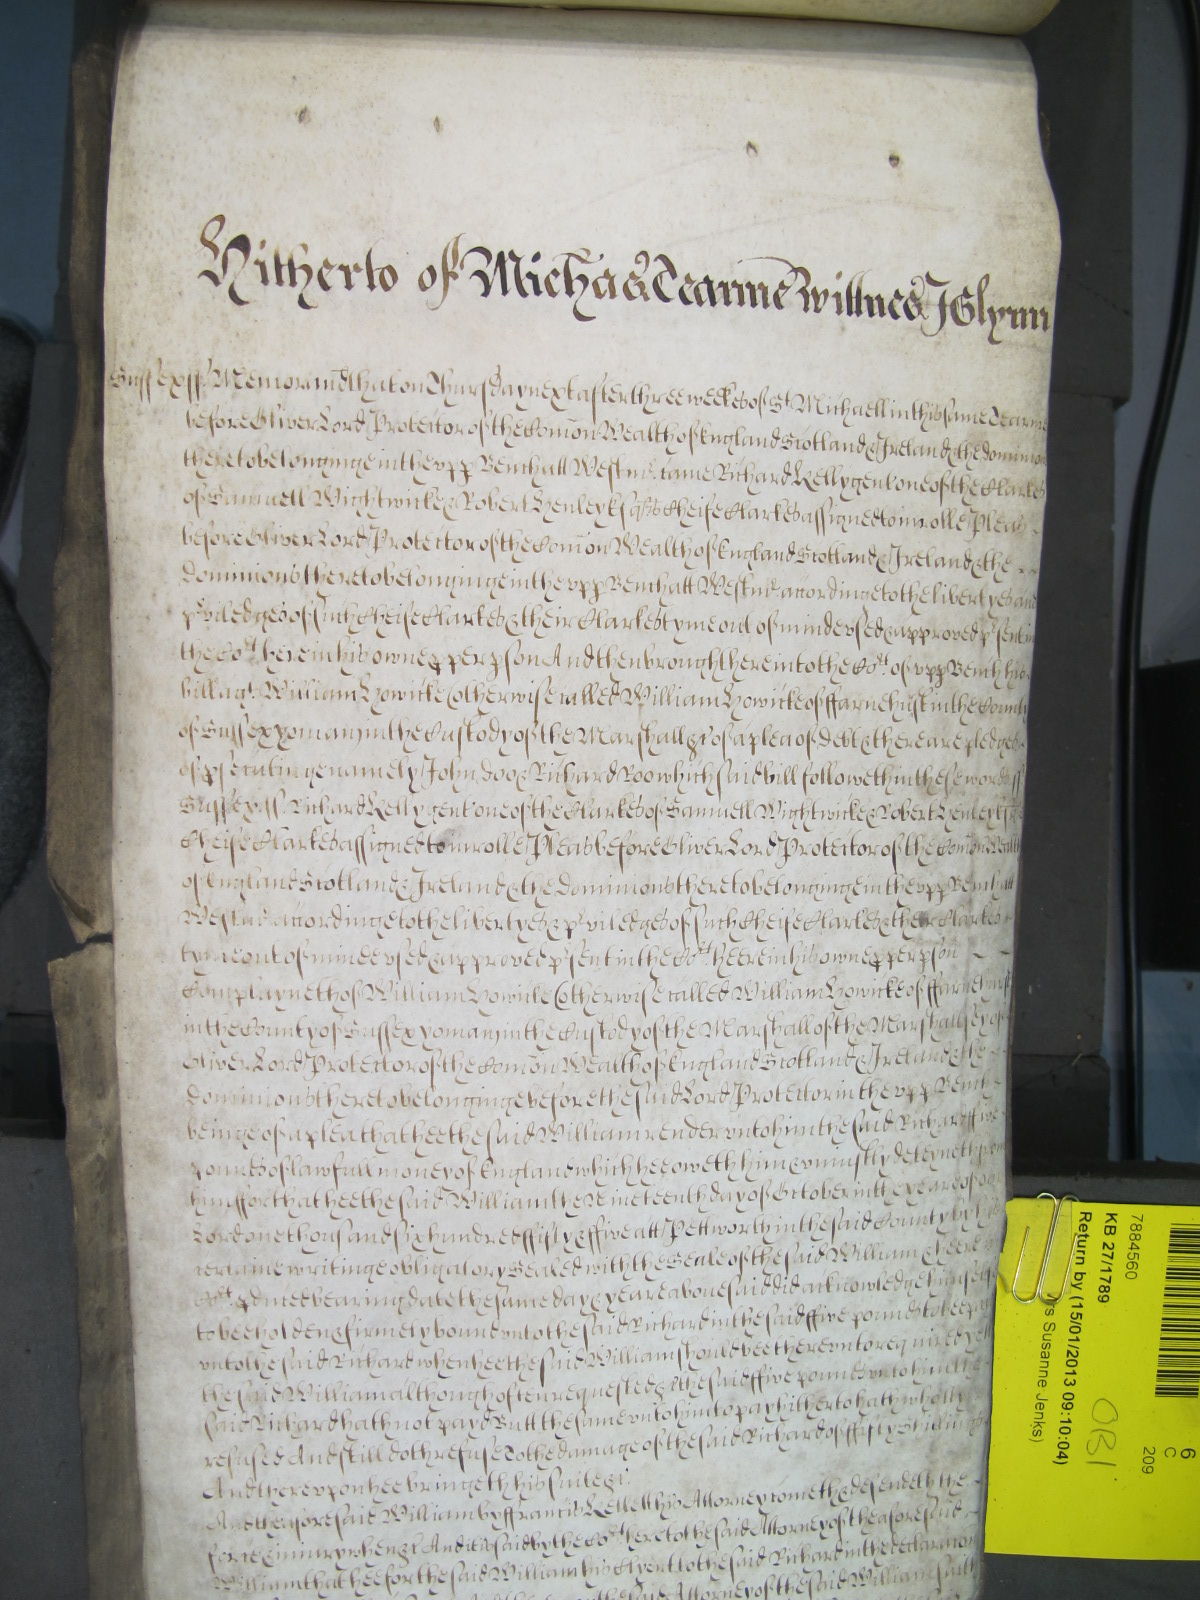 Hitherto of Michas Tearme Wittnes J Glynn
Sussex ss Memorand that on Thursday next after three weekes of St Michaell in this same Tearme
before Oliver Lord Protector of the Comon Wealth of England Scotland & Ireland & the dominions
thereto belonginge in the vpp Bench att Westmr came Richard Kelly gent one of the Clarkes
of Samuell Wightwicke & Robert Henley Cheife Clarkes assigned to inrolle Pleas
before Oliver Lord Protector of the Comon Wealth of England Scotland & Ireland & the
dominions thereto belonginge in the vpp Bench att Westmr accordinge to the libertyes and
priviledges of such Cheife Clarkes & their Clarkes tyme out of minde vsed & approved psent in
the Cort here in his owne pper pson And then brought here into the Cort of vpp Bench his
bill agt William Howicke otherwise called William Howicke of ffarnehurst in the County
of Sussex yoman in the Custody of the Marshall &c of a plea of debt & there are pledges
of psecutinge namely John Doo & Richard Roo which said bill followeth in these wordes ss
Sussex ss Richard Kelly gent one of the Clarkes of Samuell Wightwicke & Robert Henley
Cheife Clarkes assigned to inrolle Pleas before Oliver Lord Protector of the Comon Wealth
of England Scotland & Ireland & the dominions thereto belonginge in the vpp Bench att
Westmr accordinge to the libertyes & priviledges of such Cheife Clarkes & their Clarkes
tyme out of minde vsed & approved psent in the Cort heere in his owne pper pson
Complayneth of William Howicke otherwise called William Howicke of ffarnehurst
in the County of Sussex yoman in the Custody of the Marshall of the Marshallsey of
Oliver Lord Protector of the Comon Wealth of England Scotland & Ireland & the
dominions thereto belonginge before the said Lord Protector in the vpp Bench
beinge of a plea that hee the said William render vnto him the said Richard ffive
pounds of lawfull money of England which hee oweth him & vniustly deteyneth from
him ffor that hee the said William the Nineteenth day of October in the yeare of our
Lord one thousand six hundred ffifty & ffive att Pettworth in the said County by his
certaine writinge obligatory Sealed with the Seale of the said William & heere in
Cort pduced bearing date the same day & yeare abovesaid did acknowledge himselfe
to bee holden & firmely bound vnto the said Richard in the said ffive pounds to bee payd
vnto the said Richard when hee the said William should bee therevnto required yett
the said William although often requested & the said ffive pounds vnto him the
said Richard hath not payd Butt the same vnto him to pay hitherto hath wholly
refused And still doth refuse To the damage of the said Richard of ffifty Shillings
And therevpon hee bringeth his suite &c
And the aforesaid William by ffrancis Kellett his Attorney cometh & defendeth the
force & iniury when &c And it is said by the Cort here to the said Attorney of the aforesaid
William that hee for the said William his Clyent to the said Richard in the declaracon
the said Attorney of the said William saith
7884560
KB 27/1789
Return by (15/01/2013 09:10:04)
Susanne Jenks)
OB1
6
C
209